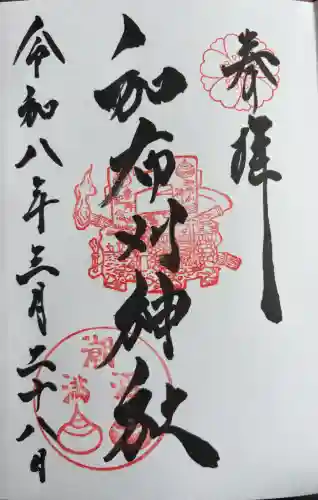 奉拝
和布刈神社
令和八年三月二十八日
潮満